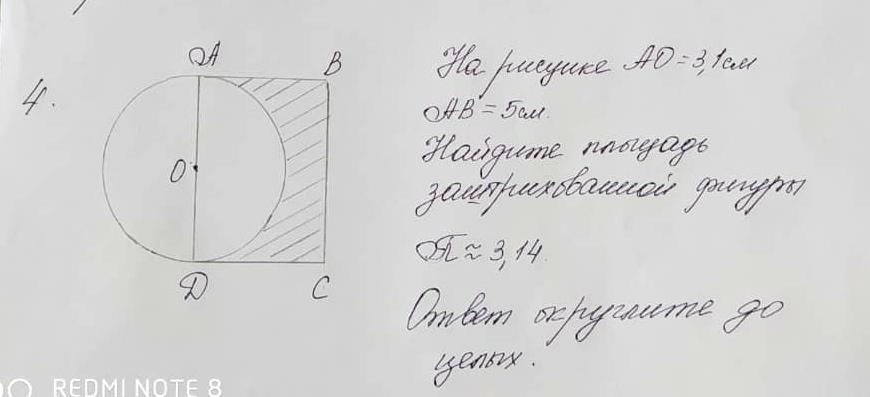 4.
A
B
O
D
C
На рисунке AO = 3,1 см
AB = 5 см.
Найдите площадь
заштрихованной фигуры
π ≈ 3,14
Ответ округлите до
целых.
REDMI NOTE 8